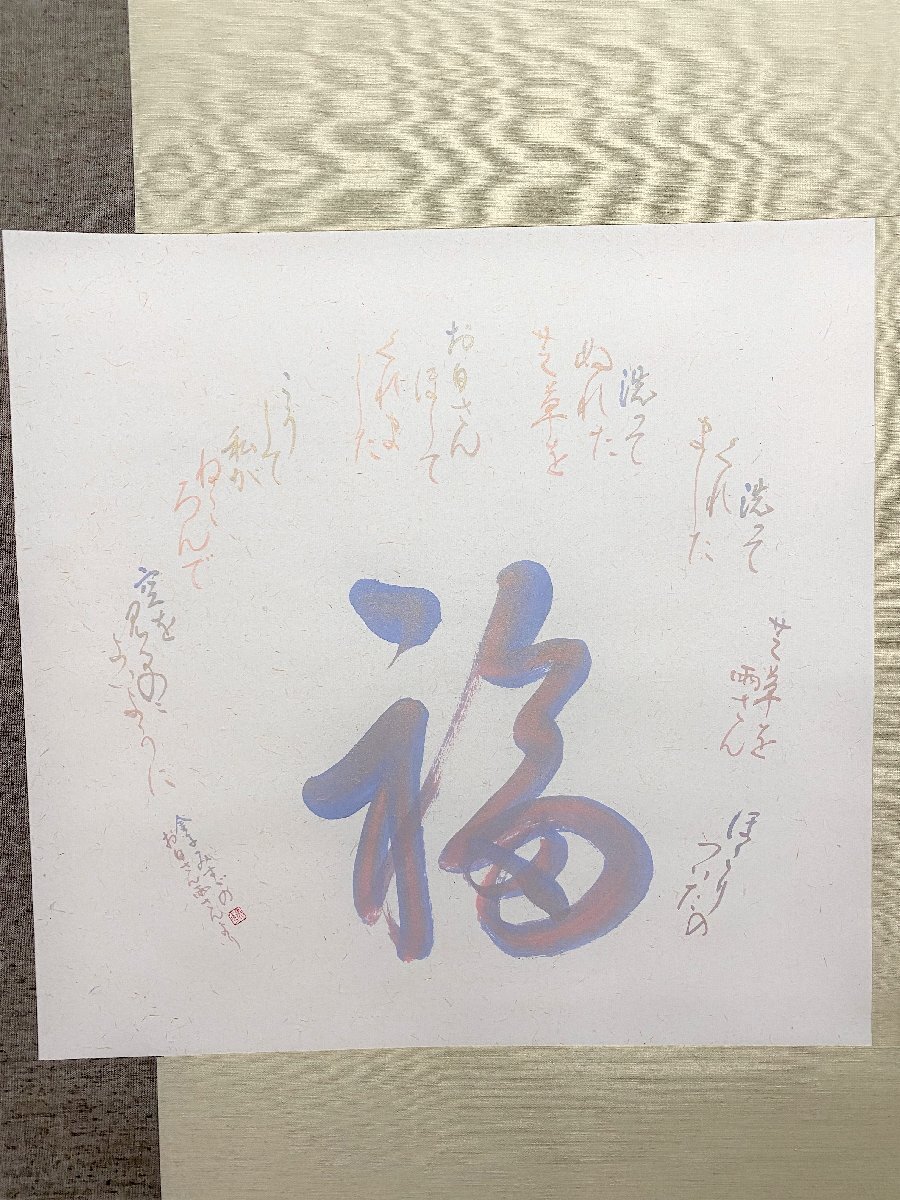 ほこりのついた
芝草を
雨さん
洗って
くれました
洗って
ぬれた
芝草を
お日さん
ほして
くれま
した
こうして
私が
ねころんで
空を
見るのに
よいように
金子みすゞの
お日さん雨さんより
福